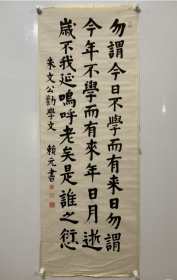 勿謂今日不學而有来日勿謂
今年不學而有來年日月逝
歲不我延嗚呼老矣是誰之愆
朱文公勸學文 賴元書